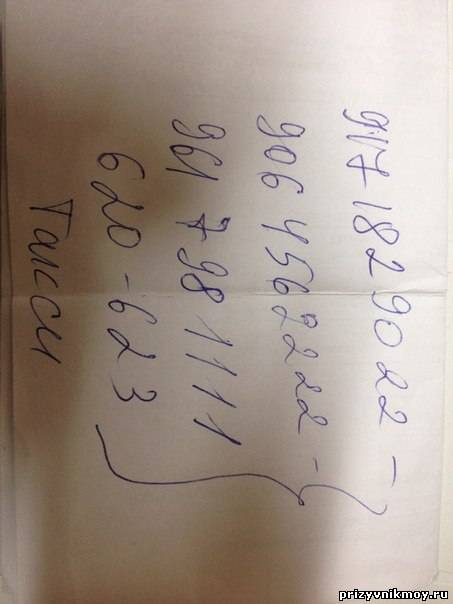 917 182 90 22 -
906 456 2222 -
961 798 1111
620 - 623
Такси
prizyvnikmoy.ru